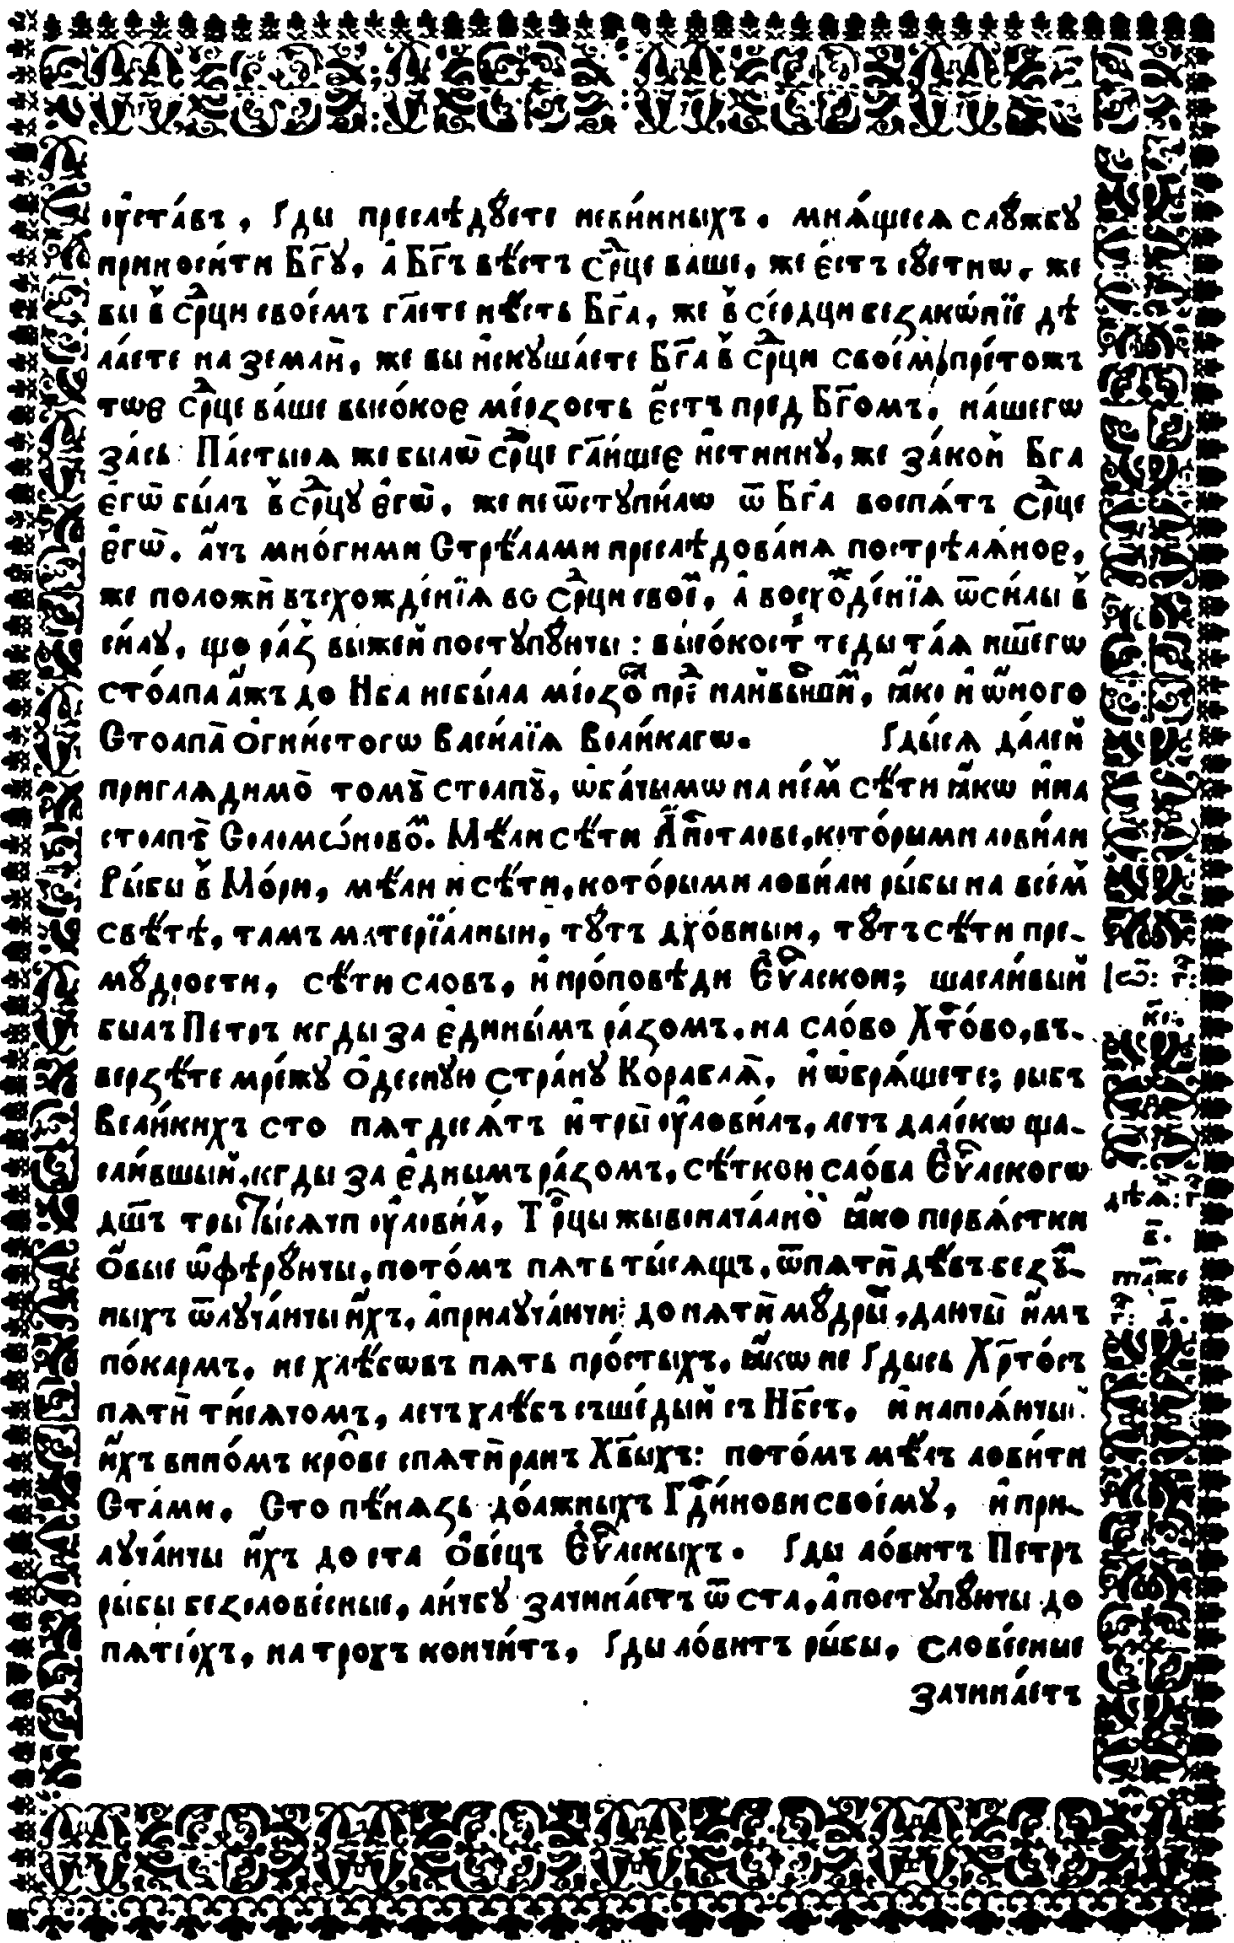 оуста́въ, Гды преслѣдꙋ́ете неви́нныхъ. мнѧ́щесѧ слꙋ́жбꙋ
приноси́ти Бг҃ꙋ, а҆ Бг҃ъ вѣ́стъ ср҃це ва́ше, же є҆́стъ сꙋ́етнѡ, же
вы в̾ ср҃ци свое́мъ гл҃ете нѣ́сть Бг҃а, же в̾ се́рдци беззако́нїе дѣ
ла́ете на земли̂, же вы и҆скꙋша́ете Бг҃а в̾ ср҃ци свое́м̾, пре́тожъ
тоє ср҃це ва́ше высо́коє ме́рзость є҆́стъ пред Бг҃омъ, на́шегѡ
за́сь Па́стырѧ же былѡ̀ ср҃це гл҃ющеє и҆́стиннꙋ, же зако́н̾ Бга
є҆гѡ̀ былъ в̾ ср҃цꙋ є҆гѡ̀, же не ѿстꙋпи́лѡ ѿ Бг҃а воспѧ́тъ ср҃це
є҆гѡ̀. а҆́чъ мно́гими Стрѣ́лами преслѣдова́нїѧ пострѣлѧ́ноє,
же положѝ въсхожде́нїѧ во ср҃ци свое́м, а҆ восхожде́нїѧ ѿ си́лы в̾
си́лꙋ, що ра́з̾ вы́жей постꙋпꙋ́ючи: высо́кост̾ теды та́ѧ на́шегѡ
сто́лпа а҆́жъ до Нба небы́ла ме́рзкою пред наивы́шшим, ꙗ҆́ко и҆ ѻ҆́ного
Столпа̀ о҆гни́стогѡ Васи́лїѧ Вели́кагѡ. Гды́сѧ да́лей
приглѧдимо̀ томꙋ̀ столпꙋ̀, ѡ҆ба́чымѡ на не́м̾ сѣ́ти ꙗ҆́кѡ и҆ на
столпѣ̀ Соломо́новом. Мѣ́ли сѣ́ти А҆п҃столове, кото́рыми лови́ли
Ры́бы в̾ Мо́ри, мѣ́ли и сѣ́ти, кото́рыми лови́ли ры́бы на все́м̾
свѣ́тѣ, тамъ матерїа́лныи, тꙋ́тъ дꙋхо́вныи, тꙋ́тъ сѣ́ти пре-
мꙋ́дрости, сѣ́ти словъ, и҆ про́повѣди Є҆ѵлскои; щасли́вый
былъ Петръ кгды за є҆дины́мъ ра́зомъ, на сло́во Хт҃о́во, въ-
верзѣ́те мре́жꙋ о҆деснꙋю стра́нꙋ Корабля̀, и҆ ѡ҆брѧ́щете; рыбъ
Вели́кихъ сто пѧтдесѧ́тъ и҆ тры̀ оу҆лови́лъ, лечъ дале́кѡ ща-
сли́вшый, кгды за є҆днымъ ра́зомъ, сѣ́ткою сло́ва Є҆ѵлскогѡ
дш҃ъ тры Ты́сѧчи оу҆лови́л̾, Тро҃цы жывоначалной ꙗ҆́кѡ первѧ́стки
ѻ҆́выє ѡ҆фѣрꙋ́ючы, пото́мъ пѧть ты́сѧщъ, ѿ пѧтѝ дѣ́въ безꙋ́м-
ныхъ ѿлꙋча́ючы и҆́хъ, а҆ прилꙋча́ючи до пѧтѝ мꙋ́дрых, даючы̀ и҆́мъ
по́кармъ, не хлѣ́бѡвъ пѧть про́стыхъ, ꙗ҆́кѡ не Гды́сь Хр҃то́съ
пѧтѝ ти́сѧчомъ, лечъ хлѣ́бъ съше́дый съ Нб҃съ, и҆ напоѧ́ючы
и҆́хъ вино́мъ кро́ве с пѧтѝ ранъ Хв҃ыхъ: пото́мъ мѣ́лъ лови́ти
Ста́ми. Сто пѣ́нѧзь до́лжныхъ Гд҃и́нови своемꙋ́, и҆ при-
лꙋча́ючы и҆́хъ до ста ѻ҆ве́цъ Є҆ѵлскыхъ. Гды ло́витъ Петръ
ры́бы безслове́сныє, ли́чбꙋ зачина́етъ ѿ ста, а҆ постꙋпꙋ́ючы до
пѧтїо́хъ, на трохъ кончи́тъ, Гды ло́витъ ры́бы, слове́сныє
зачина́етъ
Іѡ҃: г҃:
к҃є:
дѣѧ̀: г҃
в҃.
та́же
г҃: д҃.